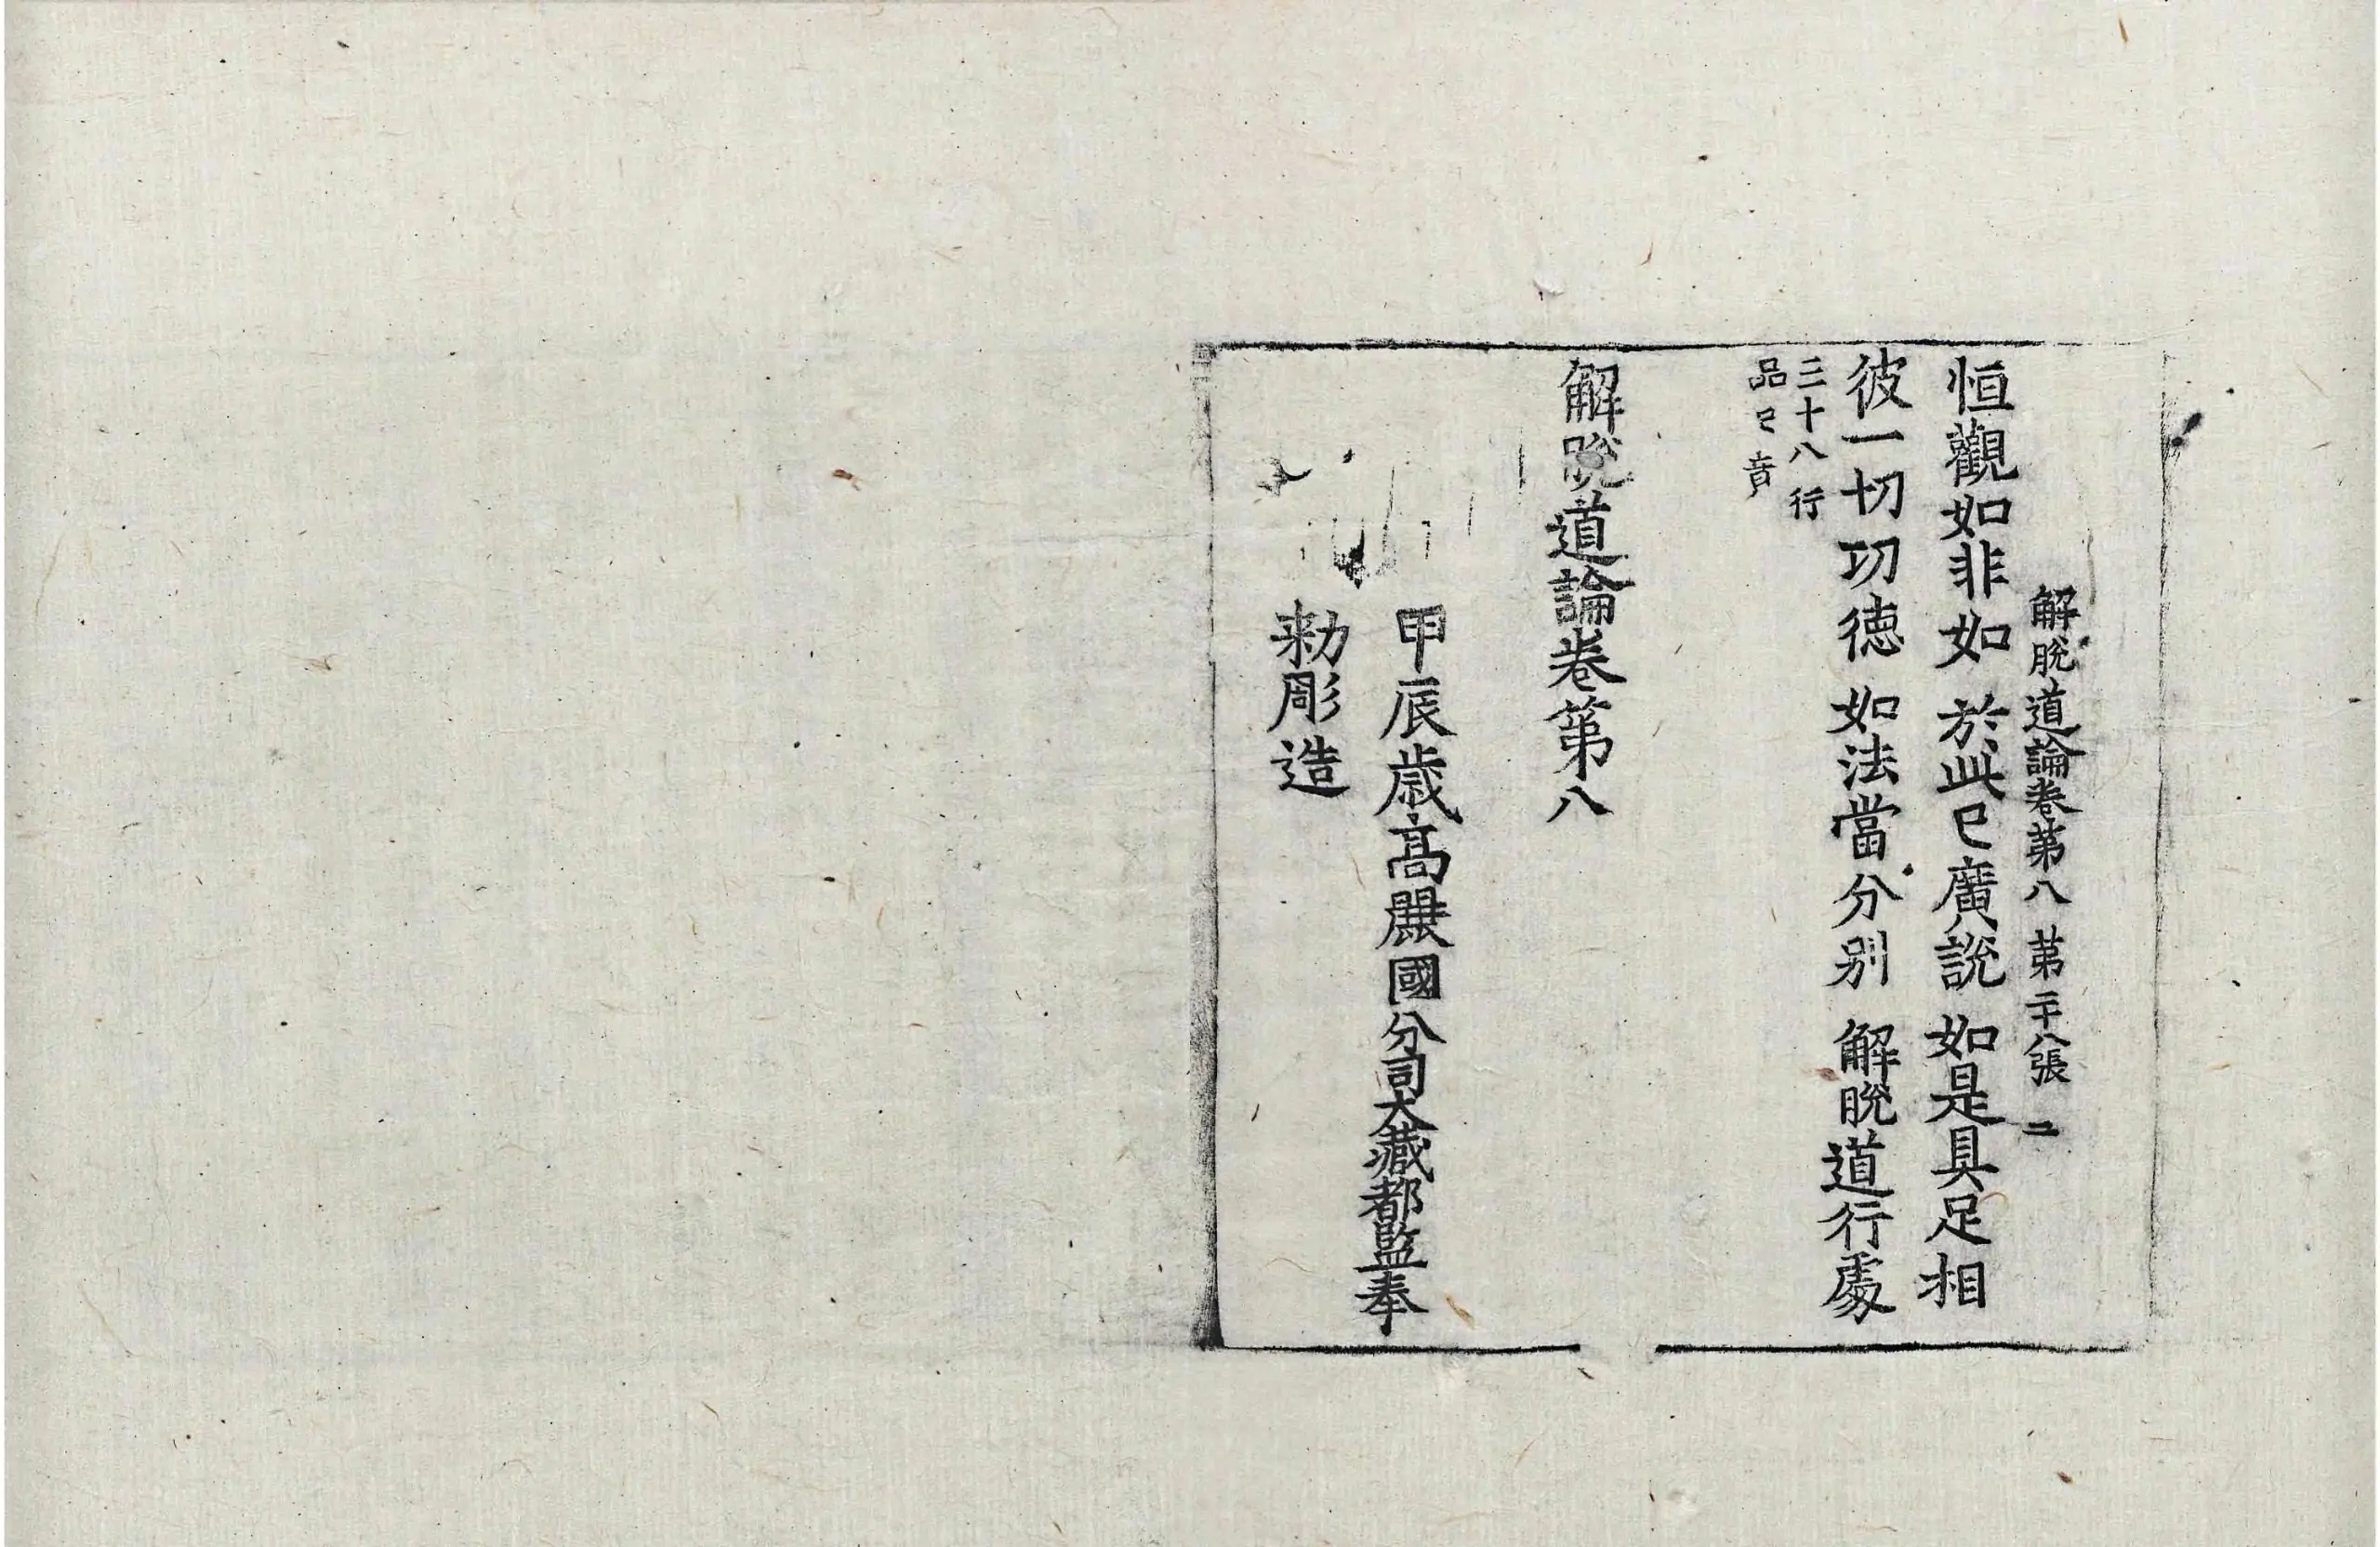 解脫道論卷第八 第二十八張 二
恒觀如非如 於此已廣說 如是具足相
彼一切功德 如法當分別 解脫道行處
三十八行
品已竟
解脫道論卷第八
甲辰歲高麗國分司大藏都監奉
勅彫造